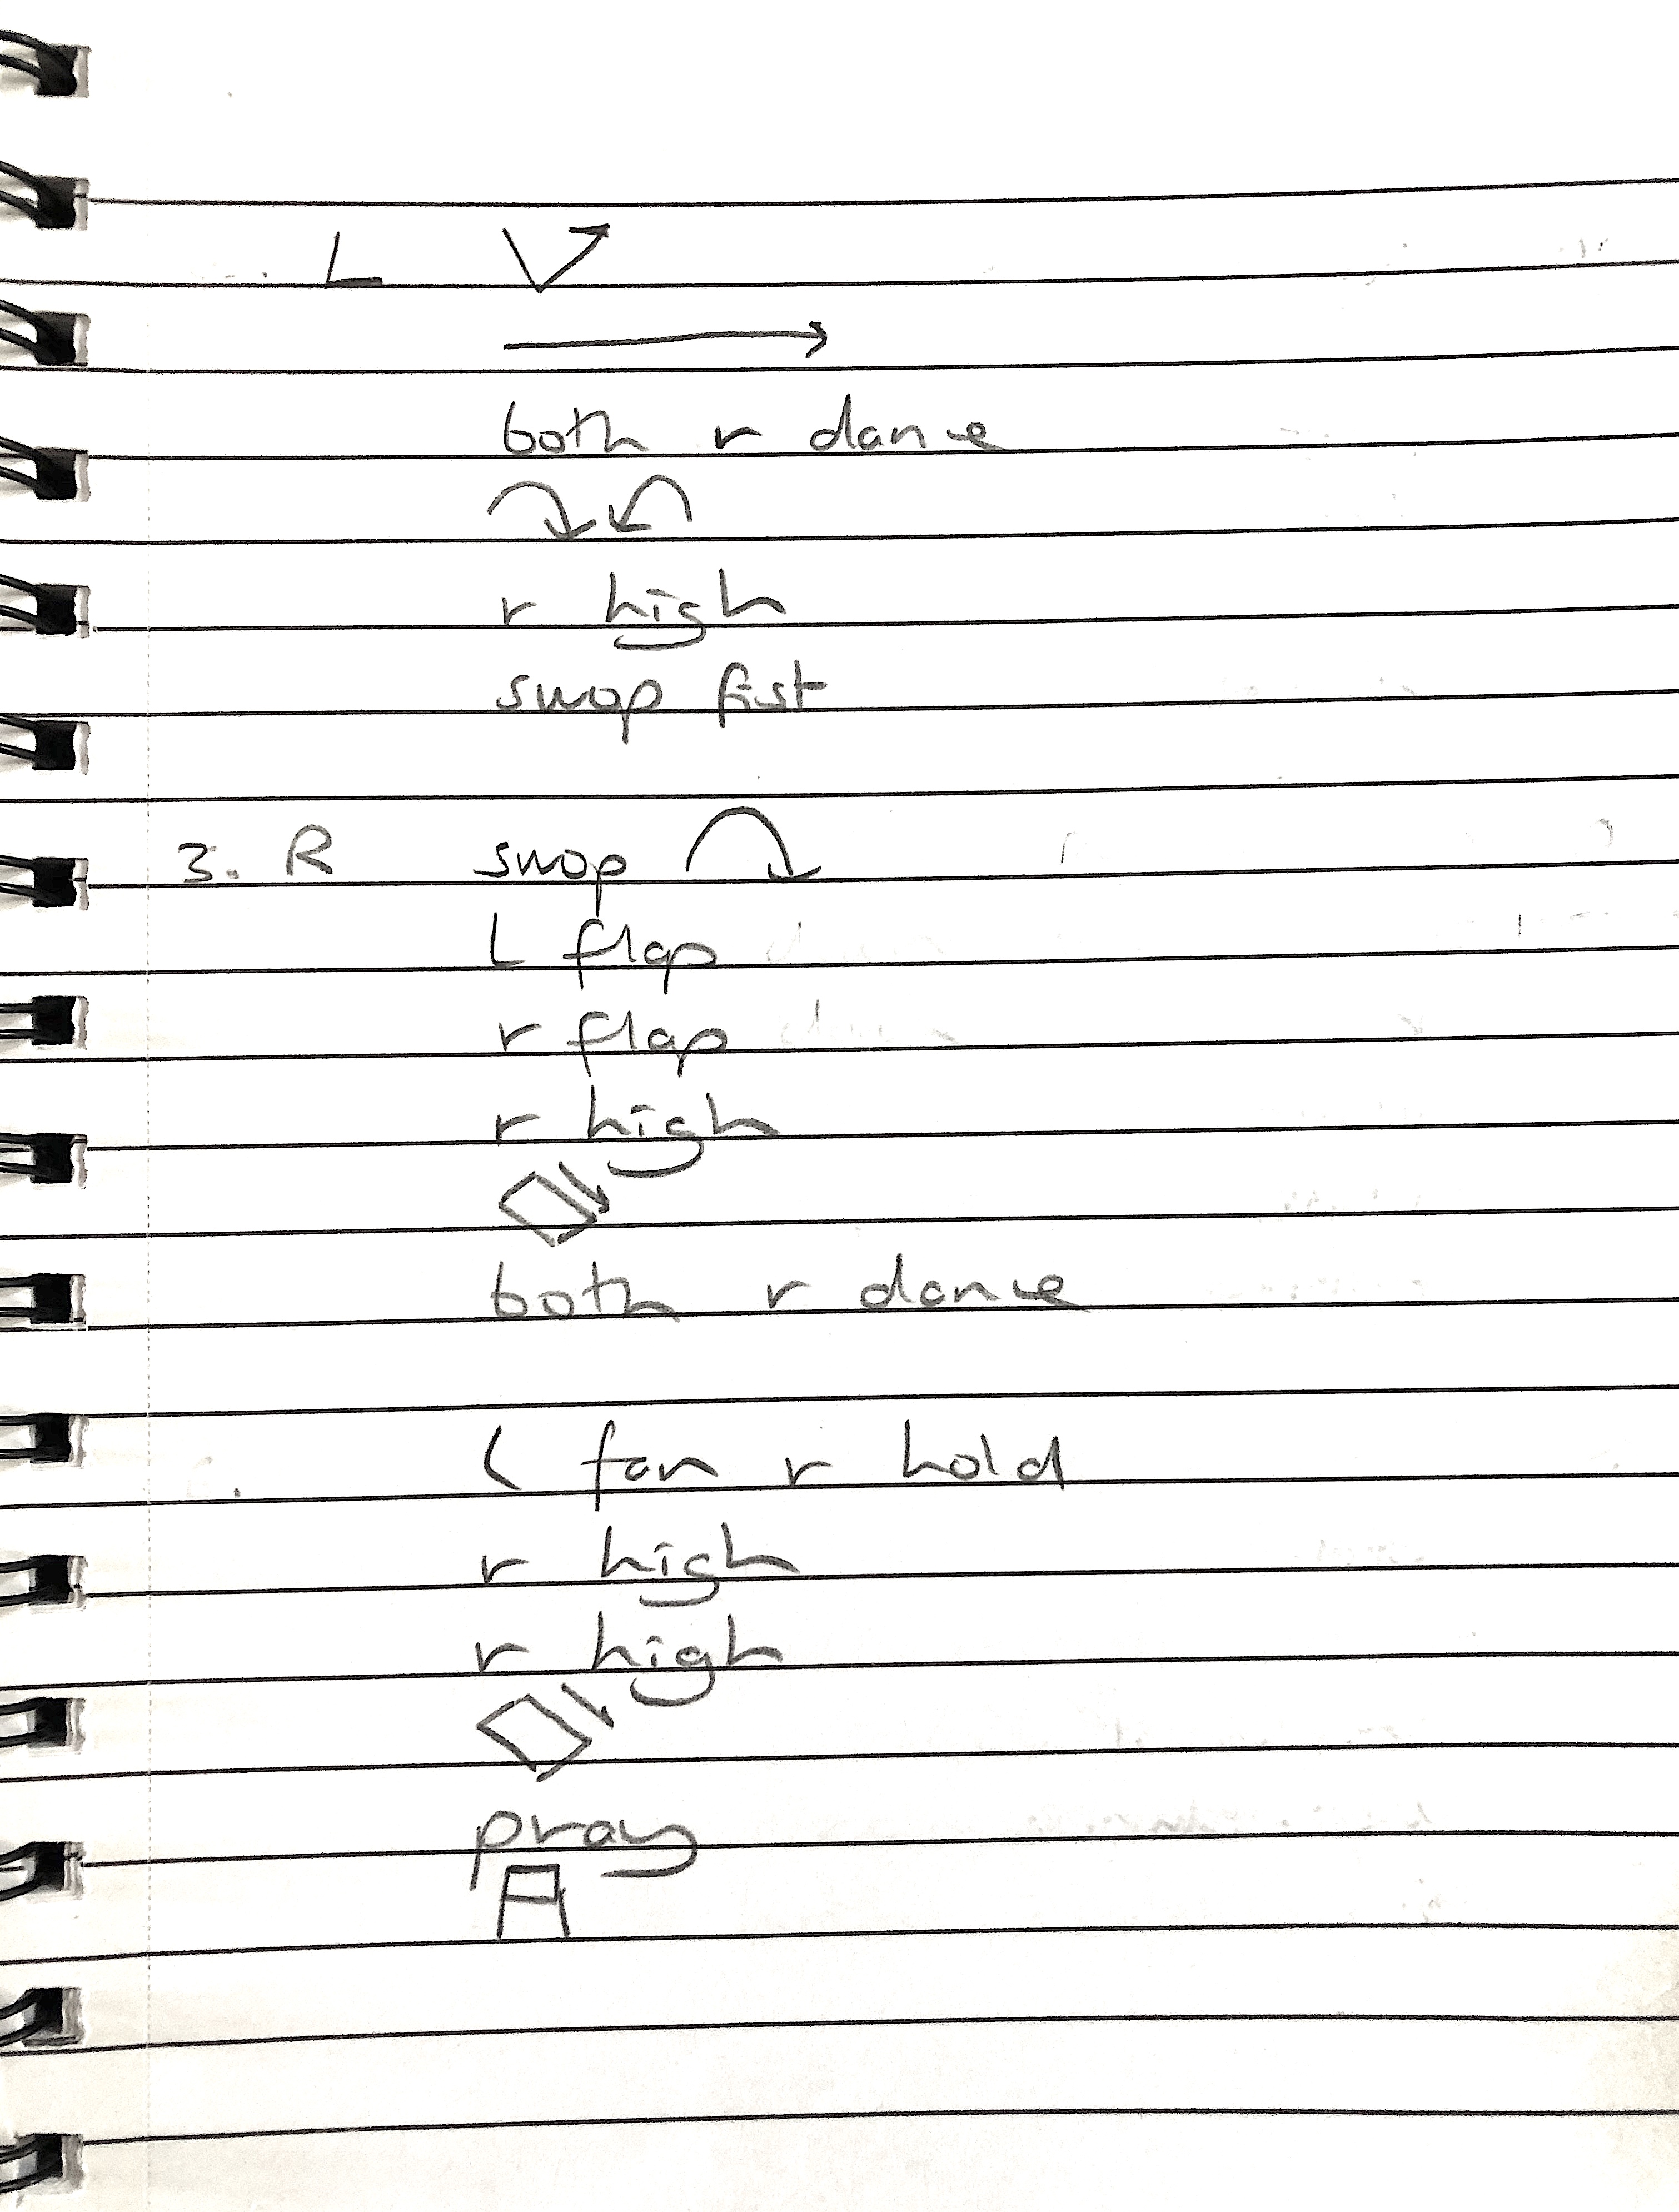 L
both r dance
r high
swop fist
3. R swop
L flap
r flap
r high
both r dance
L fan r hold
r high
r high
pray